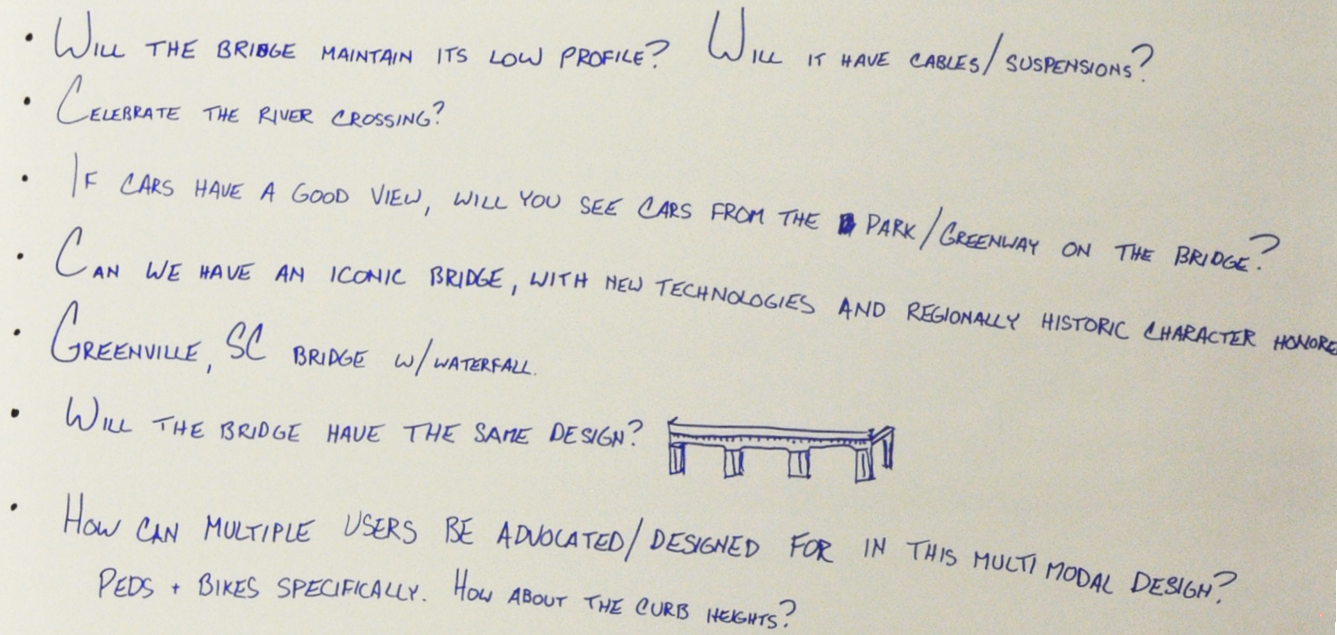 • WILL THE BRIDGE MAINTAIN ITS LOW PROFILE? WILL IT HAVE CABLES/SUSPENSIONS?
• CELEBRATE THE RIVER CROSSING?
• IF CARS HAVE A GOOD VIEW, WILL YOU SEE CARS FROM THE PARK/GREENWAY ON THE BRIDGE?
• CAN WE HAVE AN ICONIC BRIDGE, WITH NEW TECHNOLOGIES AND REGIONALLY HISTORIC CHARACTER HONORE
• GREENVILLE, SC BRIDGE W/WATERFALL.
• WILL THE BRIDGE HAVE THE SAME DESIGN?
• HOW CAN MULTIPLE USERS BE ADVOCATED/DESIGNED FOR IN THIS MULTI MODAL DESIGN?
PEDS + BIKES SPECIFICALLY. HOW ABOUT THE CURB HEIGHTS?